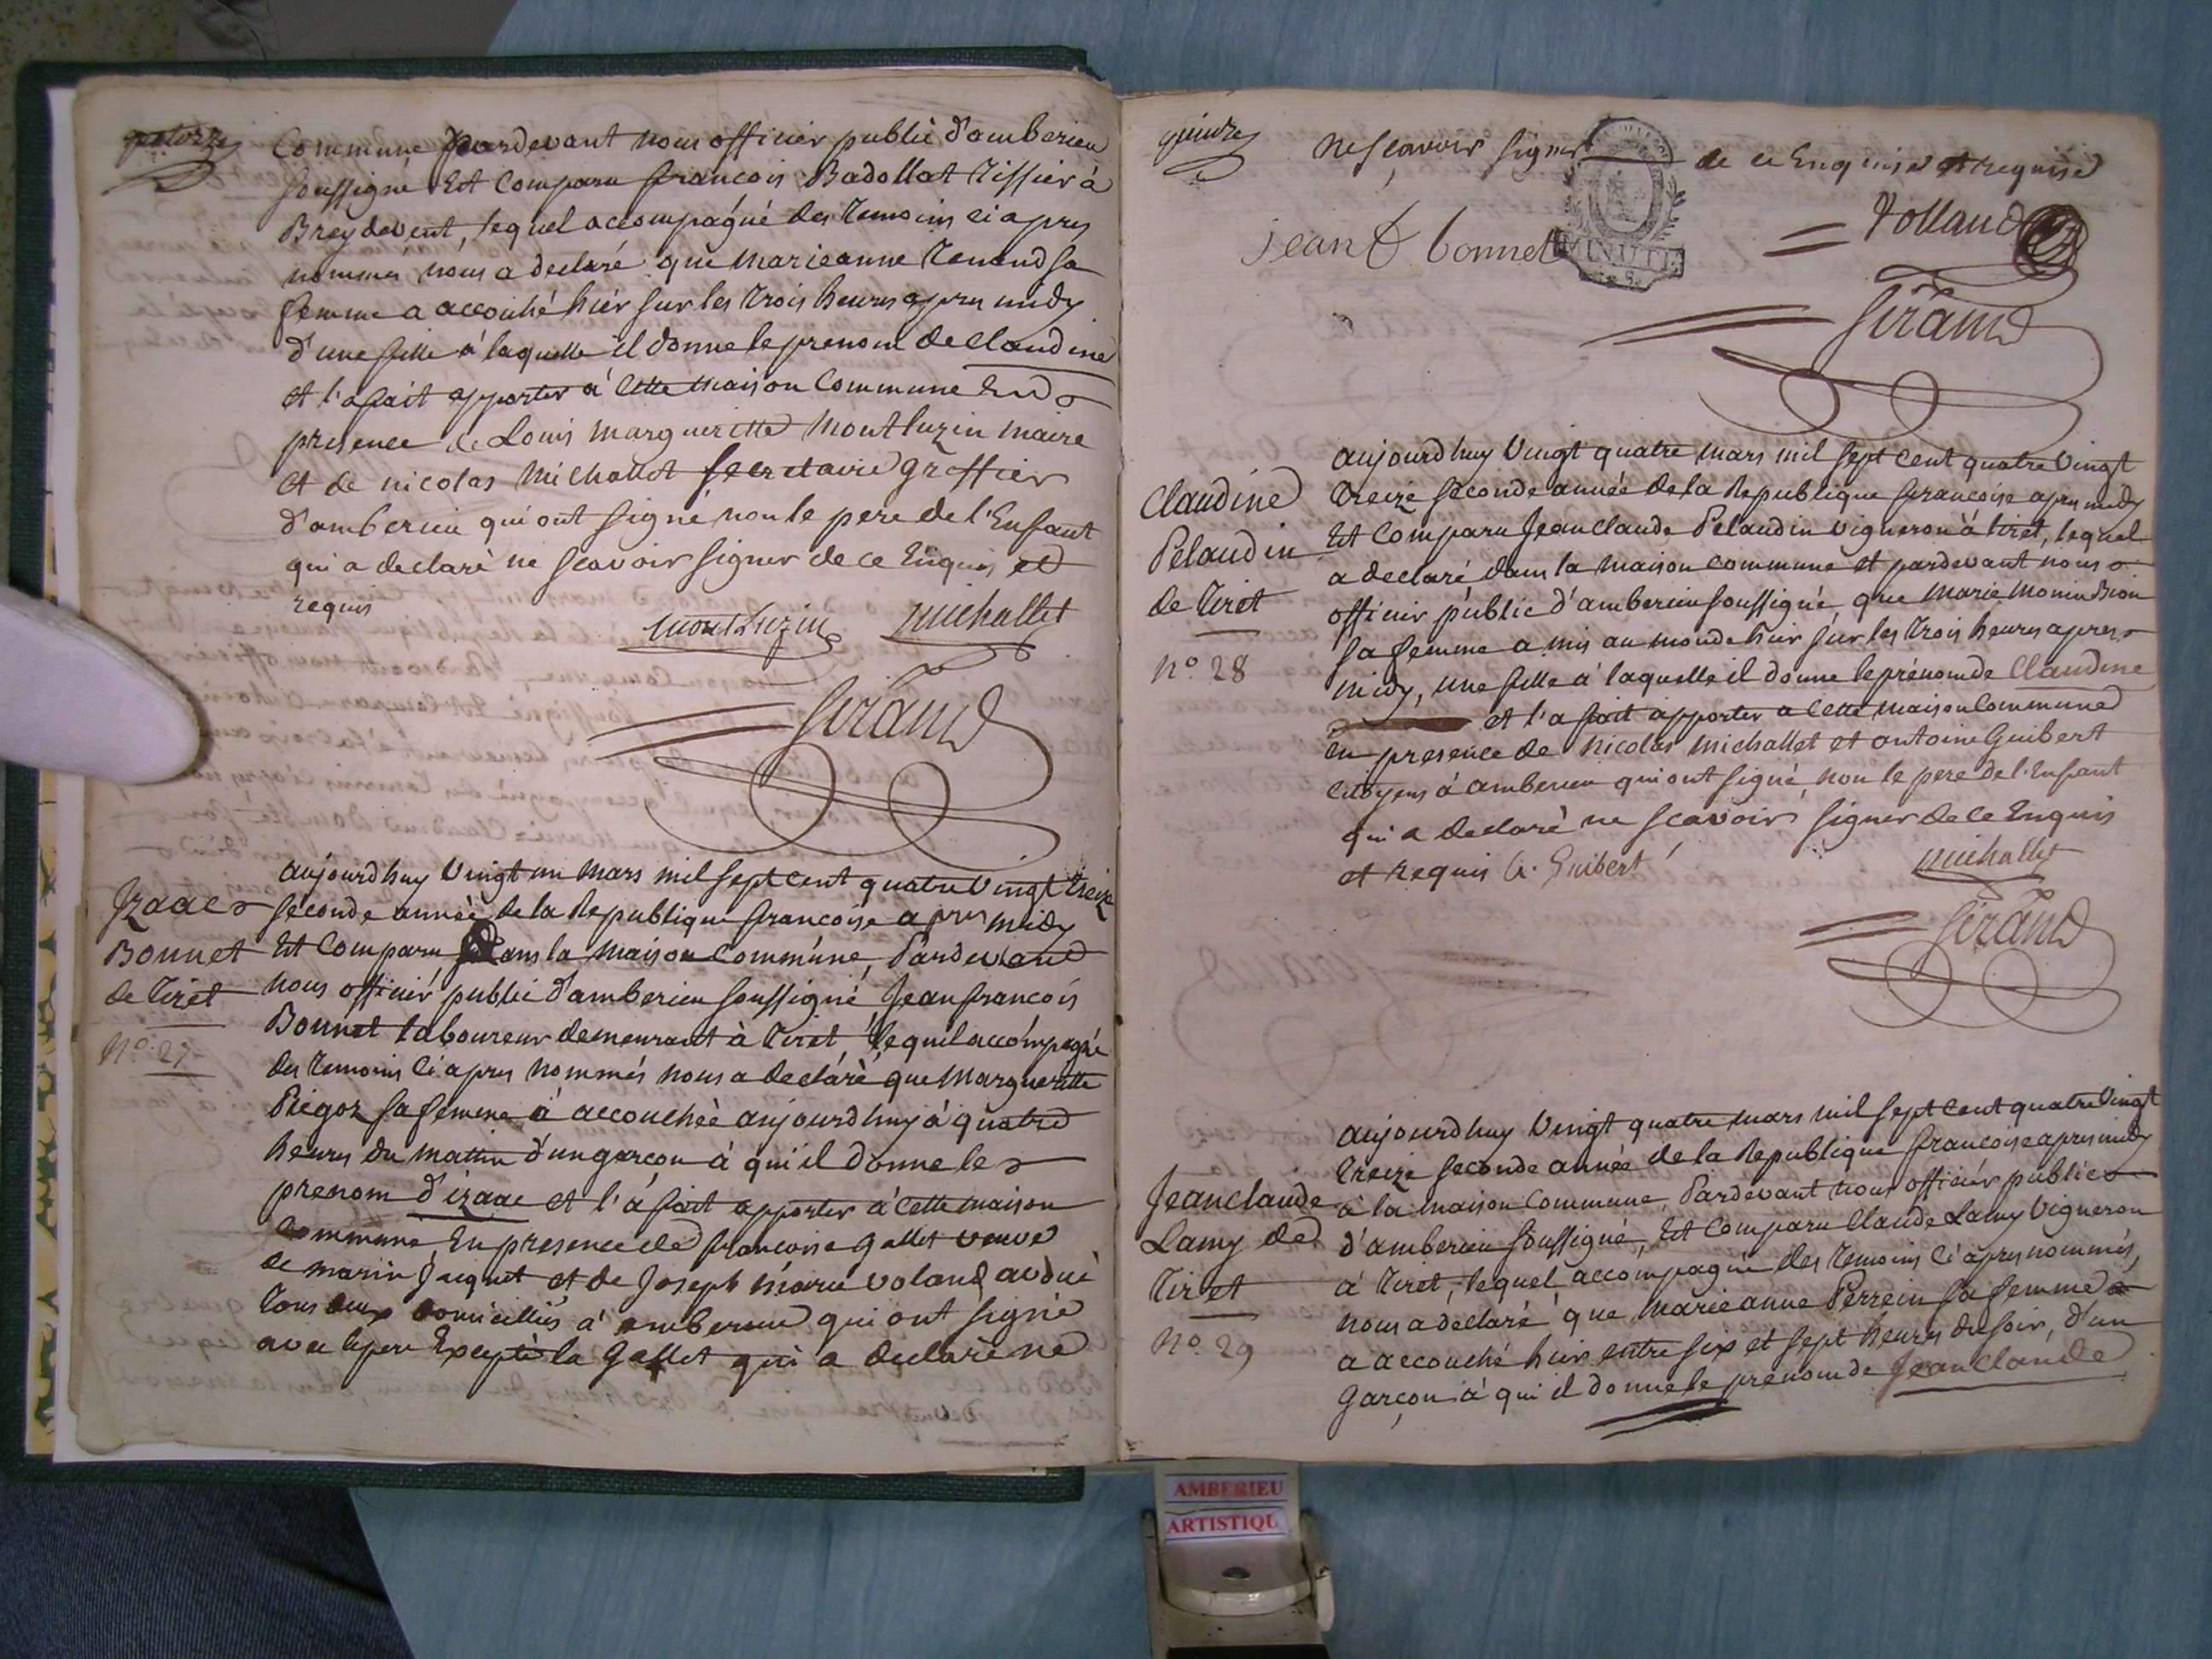 quatorze
Commune pardevant nous officier public d'amberieu
soussigné Est Comparu francois Badollat Tissier à
Breydevent, lequel accompagné des Temoins ci apres
nommés nous a declaré que marieanne Tenand sa
femme a accouché hier sur les Trois heures apres midy
d'une fille à laquelle il donne le prenom de Claudine
et l'a fait apporter à Cette maison Commune En
presence de Louis margueritte montluzin maire
et de nicolas michallet secretaire greffier
d'amberieu qui ont signé non le pere de l'Enfant
qui a declaré ne scavoir signer de ce Enquis et
requis
montluzin michallet
Girand
Izaac
Bonnet
de Tiret
No. 27
aujourd huy Vingt un mars mil sept cent quatre Vingt treize
seconde année de la Republique francoise apres midy
Est Comparu dans la maison Commune, Pardevant
nous officier public d'amberieu soussigné, Jean francois
Bonnet laboureur demeurant à Tiret, lequel accompagné
des Temoins ci apres nommés nous a declaré que margueritte
Piegoz sa femme à accouchée aujourd huy à quatre
heures du mattin d'un garcon à qui il donne le
prenom d'izaac et l'à fait apporter à Cette maison
Commune, En presence de francoise gallet veuve
de marin Jacquet et de Joseph marie voland avoué
Tous deux domiciliés à amberieu qui ont signé
avec le pere Excepté la gallet qui a declaré ne
quinze
ne scavoir signer de ce Enquise et requise
MINUTE
jean f bonnet Volland
Girand
Claudine
Pelaudin
de Tiret
No. 28
aujourd huy Vingt quatre mars mil sept cent quatre Vingt
Treize seconde année de la Republique francoise apres midy
Est Comparu Jean Claude Pelaudin vigneron à tiret, lequel
a declaré dans la maison commune et pardevant nous
officier public d'amberieu soussigné, que marie monin Bion
sa femme a mis au monde hier sur les Trois heures apres
midy, une fille à laquelle il donne le prénom de Claudine
et l'a fait apporter a cette maison Commune
en presence de nicolas michallet et antoine Guibert
citoyens à amberieu qui ont signé, non le pere de l'Enfant
qui a declaré ne scavoir signer de ce Enquis
et requis a. Guibert michallet
Girand
Jean claude
Lamy de
Tiret
No. 29
aujourd huy Vingt quatre mars mil sept cent quatre Vingt
Treize seconde année de la Republique francoise apres midy
à la maison Commune, Pardevant nous officier public
d'amberieu soussigné, Est Comparu Claude Lamy Vigneron
à Tiret, lequel accompagné des Temoins ci apres nommés,
nous a declaré que marieanne Perrein sa femme
a accouché hier entre six et sept heures du soir, d'un
Garçon à qui il donne le prenom de Jean Claude
AMBERIEU
ARTISTIQU